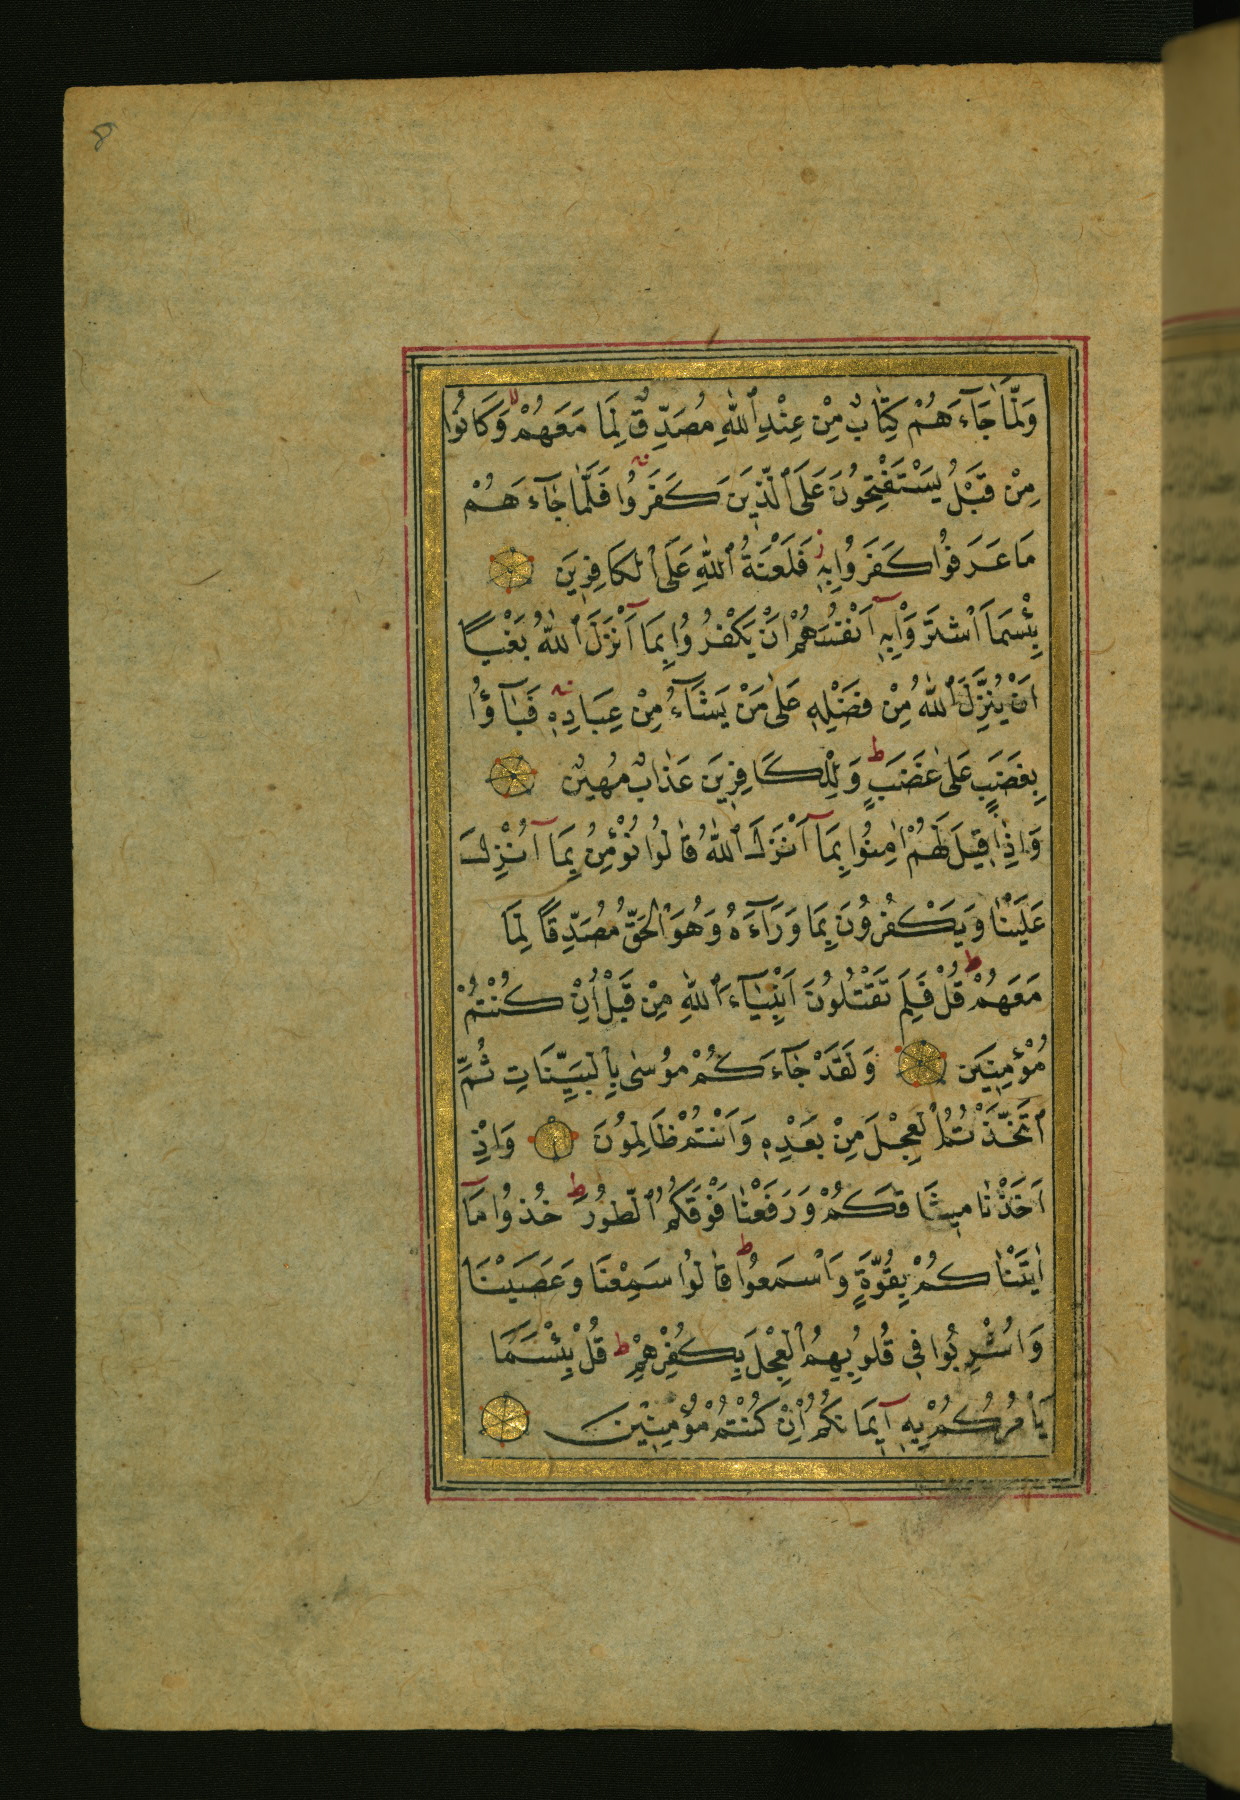 8
وَلَمَّا جَآءَهُمْ كِتَابٌ مِنْ عِنْدِ ٱللّٰهِ مُصَدِّقٌ لِمَا مَعَهُمْ ۙ وَكَانُوا
مِنْ قَبْلُ يَسْتَفْتِحُونَ عَلَى ٱلَّذِينَ كَفَرُوا فَلَمَّا جَآءَهُمْ
مَا عَرَفُوا كَفَرُوا بِهٖ ز فَلَعْنَةُ ٱللّٰهِ عَلَى ٱلْكَافِرِينَ
بِئْسَمَا ٱشْتَرَوْا بِهٖٓ اَنْفُسَهُمْ اَنْ يَكْفُرُوا بِمَآ اَنْزَلَ ٱللّٰهُ بَغْيًا
اَنْ يُنَزِّلَ ٱللّٰهُ مِنْ فَضْلِهٖ عَلٰى مَنْ يَشَآءُ مِنْ عِبَادِهٖ فَبَآؤُا
بِغَضَبٍ عَلٰى غَضَبٍ ط وَلِلْكَافِرِينَ عَذَابٌ مُهِينٌ
وَاِذَا قِيلَ لَهُمْ اٰمِنُوا بِمَآ اَنْزَلَ ٱللّٰهُ قَالُوا نُؤْمِنُ بِمَآ اُنْزِلَ
عَلَيْنَا وَيَكْفُرُونَ بِمَا وَرَآءَهُ وَهُوَ ٱلْحَقُّ مُصَدِّقًا لِمَا
مَعَهُمْ ط قُلْ فَلِمَ تَقْتُلُونَ اَنْبِيَآءَ ٱللّٰهِ مِنْ قَبْلُ اِنْ كُنْتُمْ
مُؤْمِنِينَ وَلَقَدْ جَآءَكُمْ مُوسٰى بِٱلْبَيِّنَاتِ ثُمَّ
ٱتَّخَذْتُمُ ٱلْعِجْلَ مِنْ بَعْدِهٖ وَاَنْتُمْ ظَالِمُونَ وَاِذْ
اَخَذْنَا مِيثَاقَكُمْ وَرَفَعْنَا فَوْقَكُمُ ٱلطُّورَ ط خُذُوا مَآ
اٰتَيْنَاكُمْ بِقُوَّةٍ وَٱسْمَعُوا ط قَالُوا سَمِعْنَا وَعَصَيْنَا
وَاُشْرِبُوا فِي قُلُوبِهِمُ ٱلْعِجْلَ بِكُفْرِهِمْ ط قُلْ بِئْسَمَا
يَأْمُرُكُمْ بِهٖٓ اِيمَانُكُمْ اِنْ كُنْتُمْ مُؤْمِنِينَ